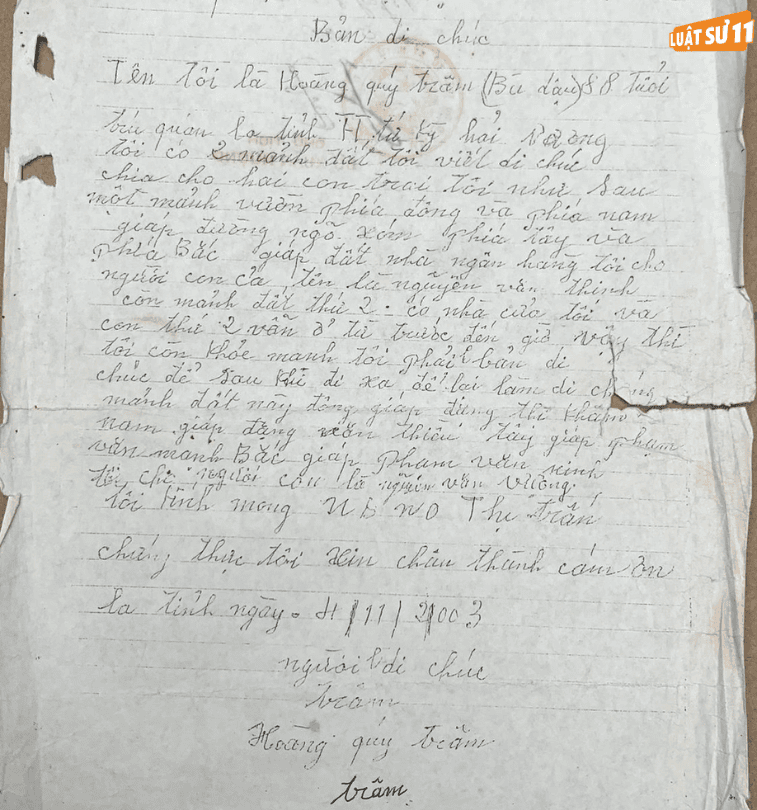 LUẬT SƯ 11
Bản di chúc
Tên tôi là Hoàng quý trâm (Bu dậu) 88 tuổi
trú quán la tỉnh TT tứ kỳ hải dương
tôi có 2 mảnh đất tôi viết di chúc
chia cho hai con trai tôi như sau
một mảnh vườn phía đông và phía nam
giáp đường ngõ xóm phía tây và
phía Bắc giáp đất nhà ngân hàng tôi cho
người con cả tên là nguyễn văn thinh
con mảnh đất thứ 2 - có nhà cửa tôi và
con thứ 2 vẫn ở từ trước đến giờ vậy thì
tôi còn khỏe mạnh tôi phải bản di
chúc để sau khi đi xa để lại làm di
mảnh đất này đông giáp thi
nam giáp đặng văn thiều tây giáp phạm
văn mạnh Bắc giáp phạm văn ninh
tôi chỉ người con là nguyễn văn vường
tôi kính mong U B N D Thị trấn
chứng thực tôi xin chân thành cám ơn
la tỉnh ngày. 4/11/2003
người di chúc
trâm
Hoàng quý trâm
trâm